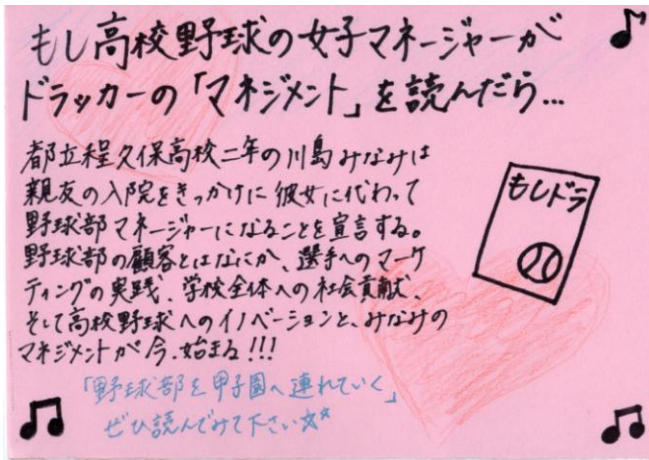 もし高校野球の女子マネージャーが
ドラッカーの「マネジメント」を読んだら…
都立程久保高校二年の川島みなみは
親友の入院をきっかけに彼女に代わって
野球部マネージャーになることを宣言する。
野球部の顧客とはなにか、選手へのマーケ
ティングの実践、学校全体への社会貢献、
そして高校野球へのイノベーションと、みなみの
マネジメントが今、始まる!!!
もしドラ
「野球部を甲子園へ連れていく」
ぜひ読んでみて下さい☆☆